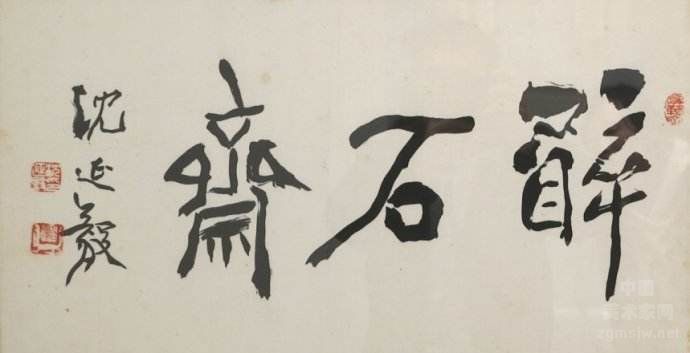 醉石齋
沈延毅
中国
美术家网
zgmsjw.net